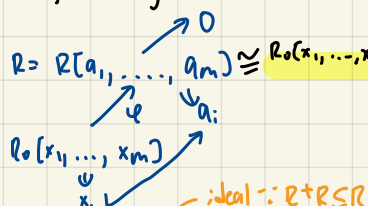 0
R = R[a₁, ....., aₘ] ≅ R₀(x₁, ..., x
φ
aᵢ
R₀[x₁, ..., xₘ]
x
ideal ∵ R+RSR